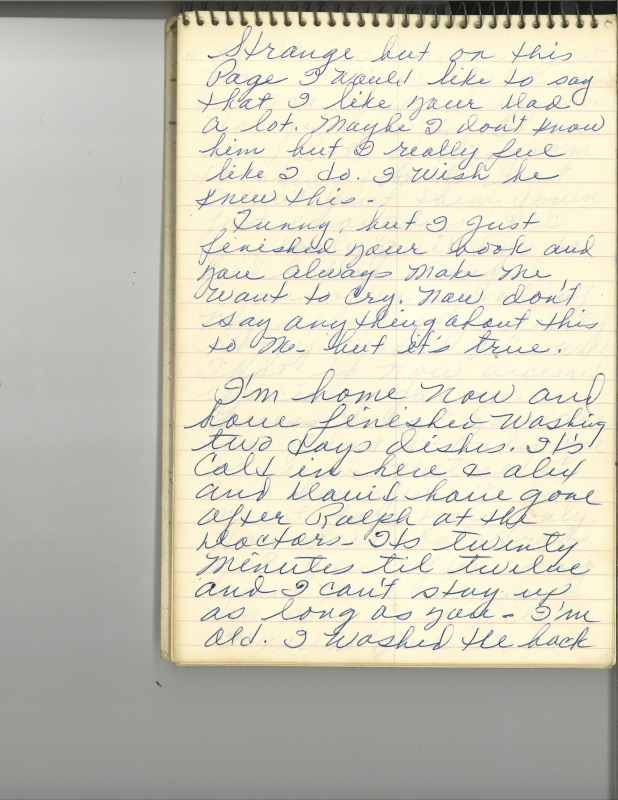 Strange but on this
Page I would like to say
that I like your Dad
a lot. Maybe I don't know
him but I really feel
like I do. I wish he
knew this.
Funny, but I just
finished your book and
you always make me
want to cry. Now don't
say anything about this
to me - but it's true.
I'm home now and
have finished washing
two days dishes. It's
Cold in here & alex
and David have gone
after Ralph at the
Doctors - Its twenty
minutes til twelve
and I can't stay up
as long as you - I'm
old. I washed the back